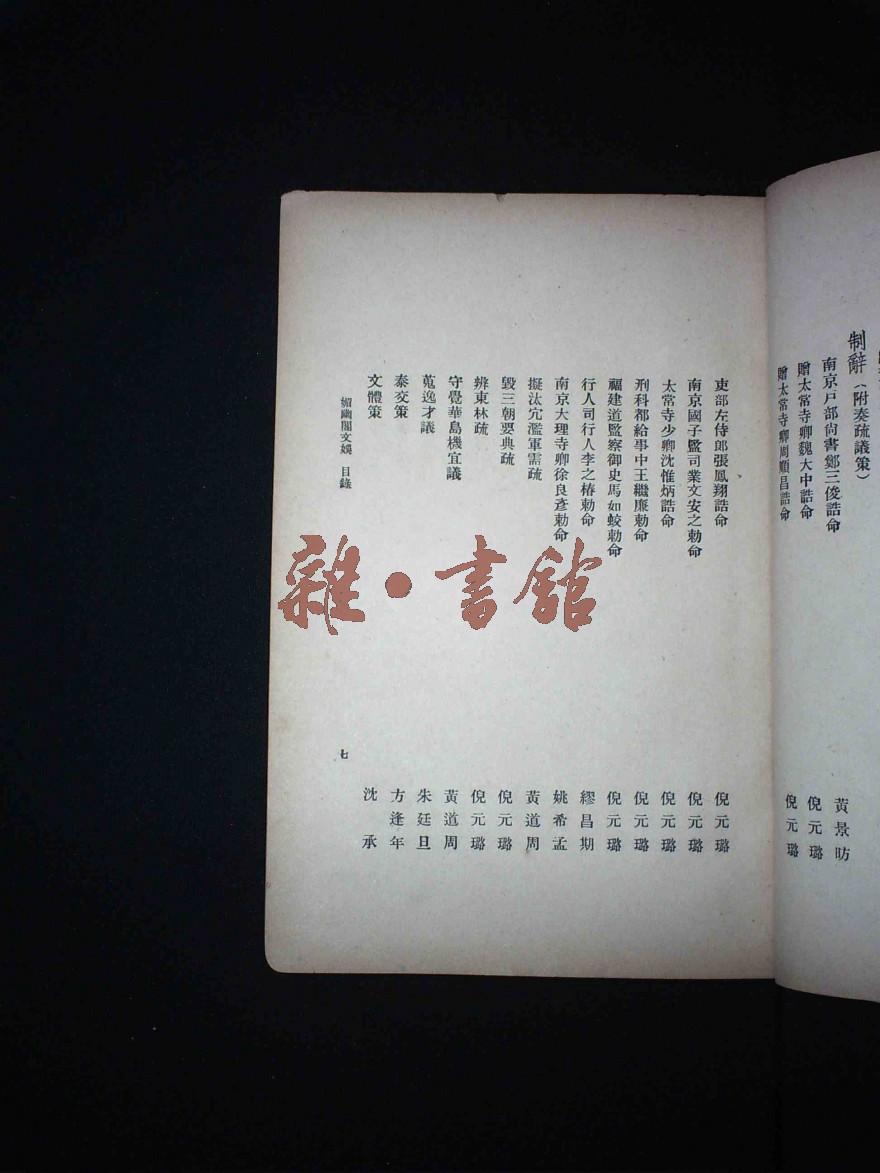 制辭（附奏疏議策）
南京戶部尚書鄭三俊誥命 黃景昉
贈太常寺卿魏大中誥命 倪元璐
贈太常寺卿周順昌誥命 倪元璐
吏部左侍郎張鳳翔誥命 倪元璐
南京國子監司業文安之勅命 倪元璐
太常寺少卿沈惟炳誥命 倪元璐
刑科都給事中王繼廉勅命 倪元璐
福建道監察御史馬如蛟勅命 倪元璐
行人司行人李之椿勅命 繆昌期
南京大理寺卿徐良彥勅命 姚希孟
擬汰宂濫軍需疏 黃道周
毀三朝要典疏 倪元璐
辨東林疏 倪元璐
守覺華島機宜議 黃道周
蒐逸才議 朱廷旦
泰交策 方逢年
文體策 沈承
媚幽閣文娛 目錄 七
雜·書館